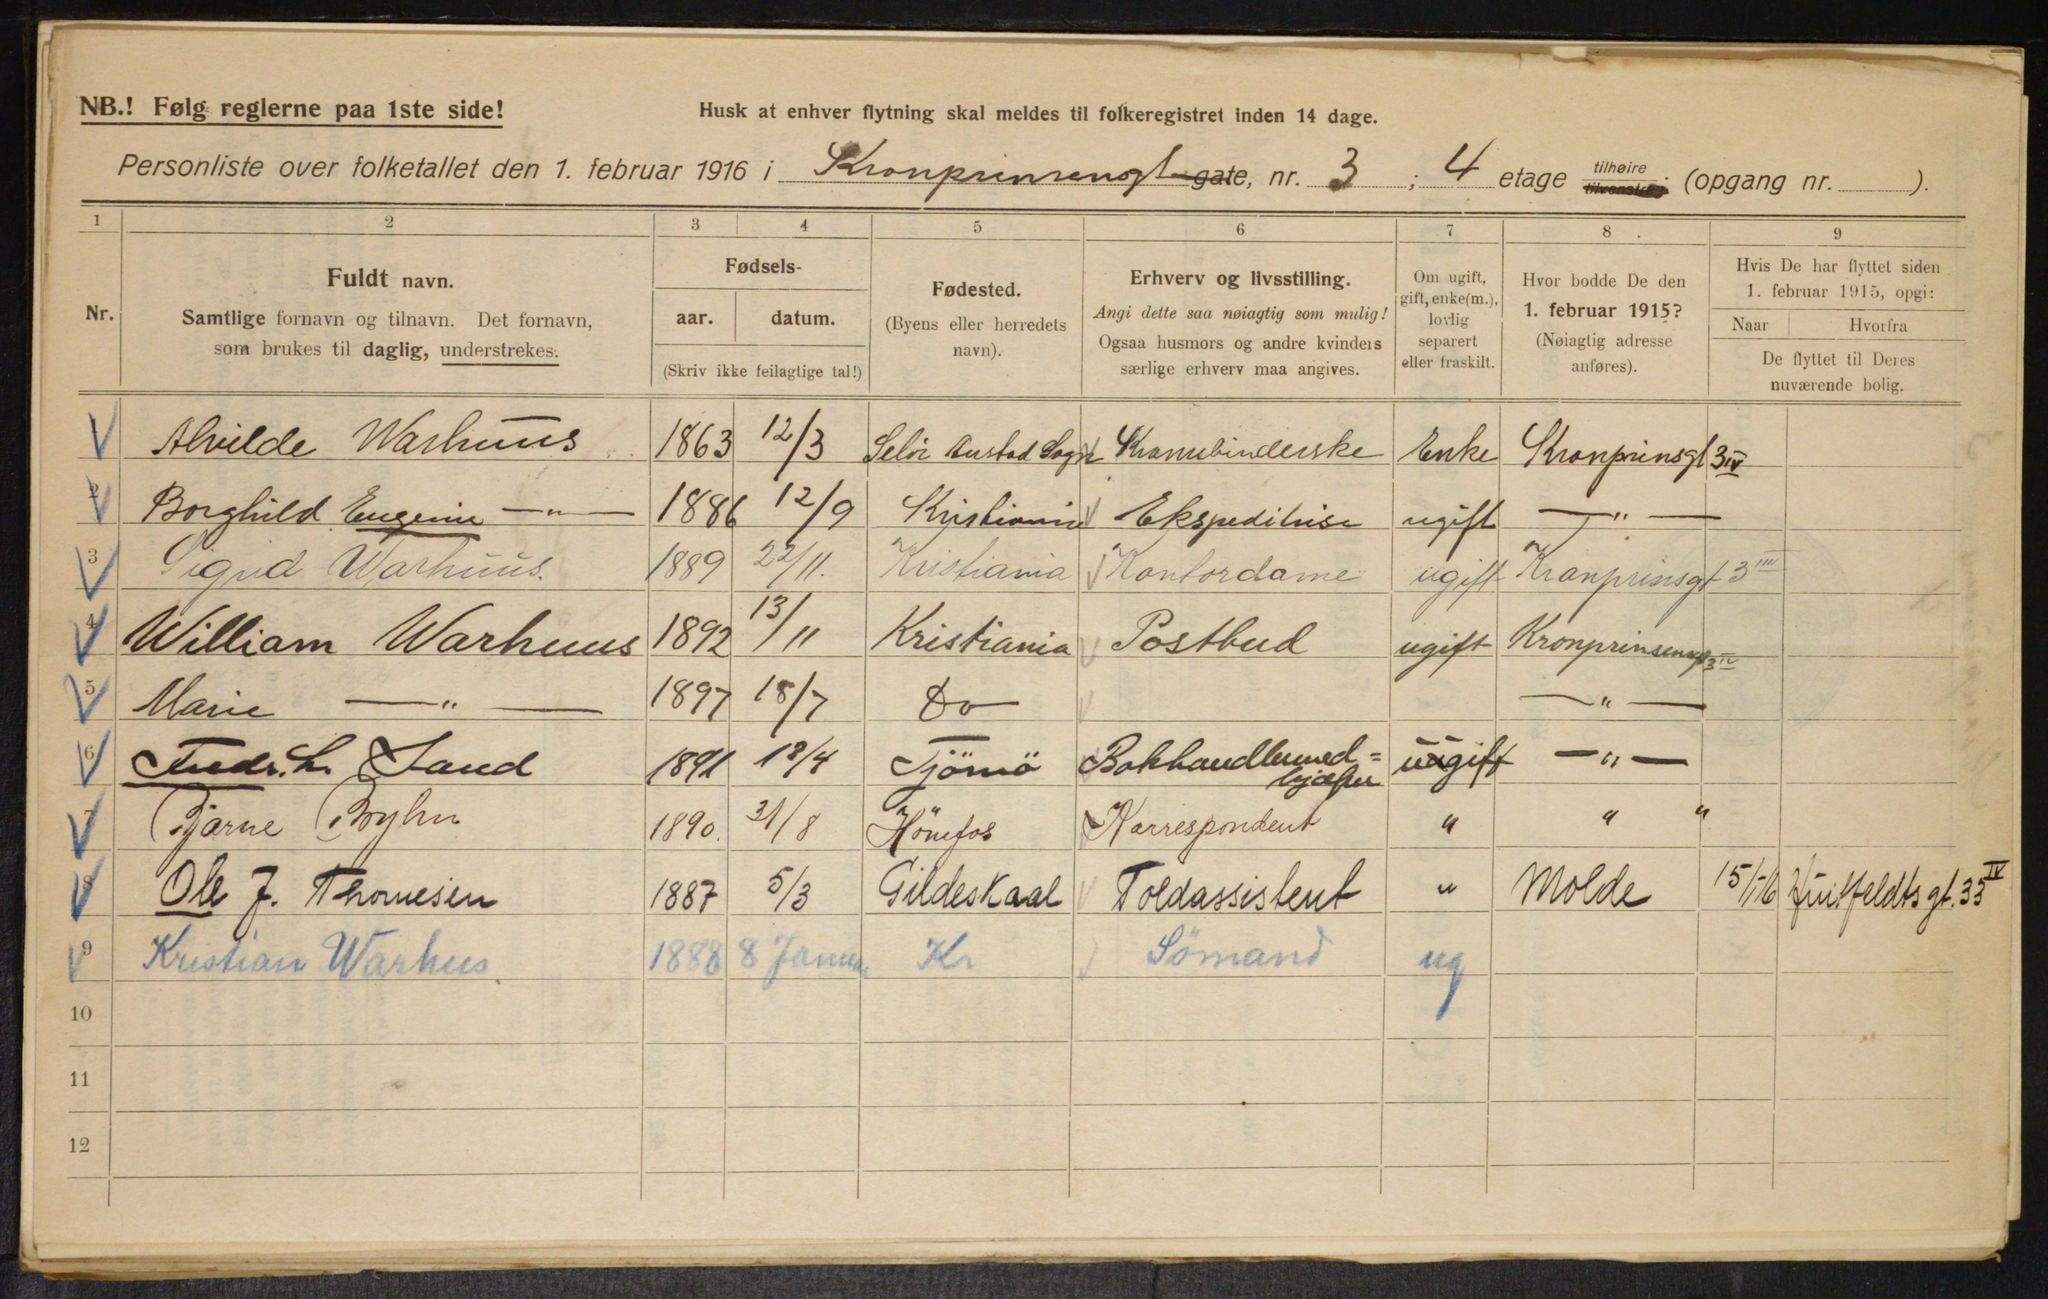 NB.! Følg reglerne paa 1ste side!
Husk at enhver flytning skal meldes til folkeregistret inden 14 dage.
Personliste over folketallet den 1. februar 1916 i Kronprinsensgt gate, nr. 3 ; 4 etage tilhøire tilvenstre (opgang nr. ).
1 2 3 4 5 6 7 8 9
Nr.
Fuldt navn.
Samtlige fornavn og tilnavn. Det fornavn,
som brukes til daglig, understrekes.
Fødsels-
aar. datum.
(Skriv ikke feilagtige tal!)
Fødested.
(Byens eller herredets
navn).
Erhverv og livsstilling.
Angi dette saa nøiagtig som mulig!
Ogsaa husmors og andre kvinders
særlige erhverv maa angives.
Om ugift,
gift, enke(m.),
lovlig
separert
eller fraskilt.
Hvor bodde De den
1. februar 1915?
(Nøiagtig adresse
anføres).
Hvis De har flyttet siden
1. februar 1915, opgi:
Naar Hvorfra
De flyttet til Deres
nuværende bolig.
Alvilde Warhuus 1863 12/3 Selör Austad Sogn Kransebinderske Enke Kronprinsgt 3 IV
2 Borghild Eugenie —"— 1886 12/9 Kristiania Ekspeditrise ugift —"—
3 Sigrid Warhuus. 1889 22/11. Kristiania Kontordame ugift Kronprinsgt 3 IIII
4 William Warhuus 1892 13/11 Kristiania Postbud ugift Kronprinsensgt 3 IV
5 Marie —"— 1897 18/7 Do —"—
6 Fredr. L. Sand 1891 18/4 Tjömö Bokhandlermed=
hjælper ugift —"—
7 Bjarne Bryhn 1890. 31/8 Hönefos Korrespondent " " "
8 Ole J. Thomesen 1887 5/3 Gildeskaal Toldassistent " Molde 15/1-16 Huitfeldtsgt. 33 IV
9 Kristian Warhus. 1888 8 Januar Kr Sömand ug
10
11
12